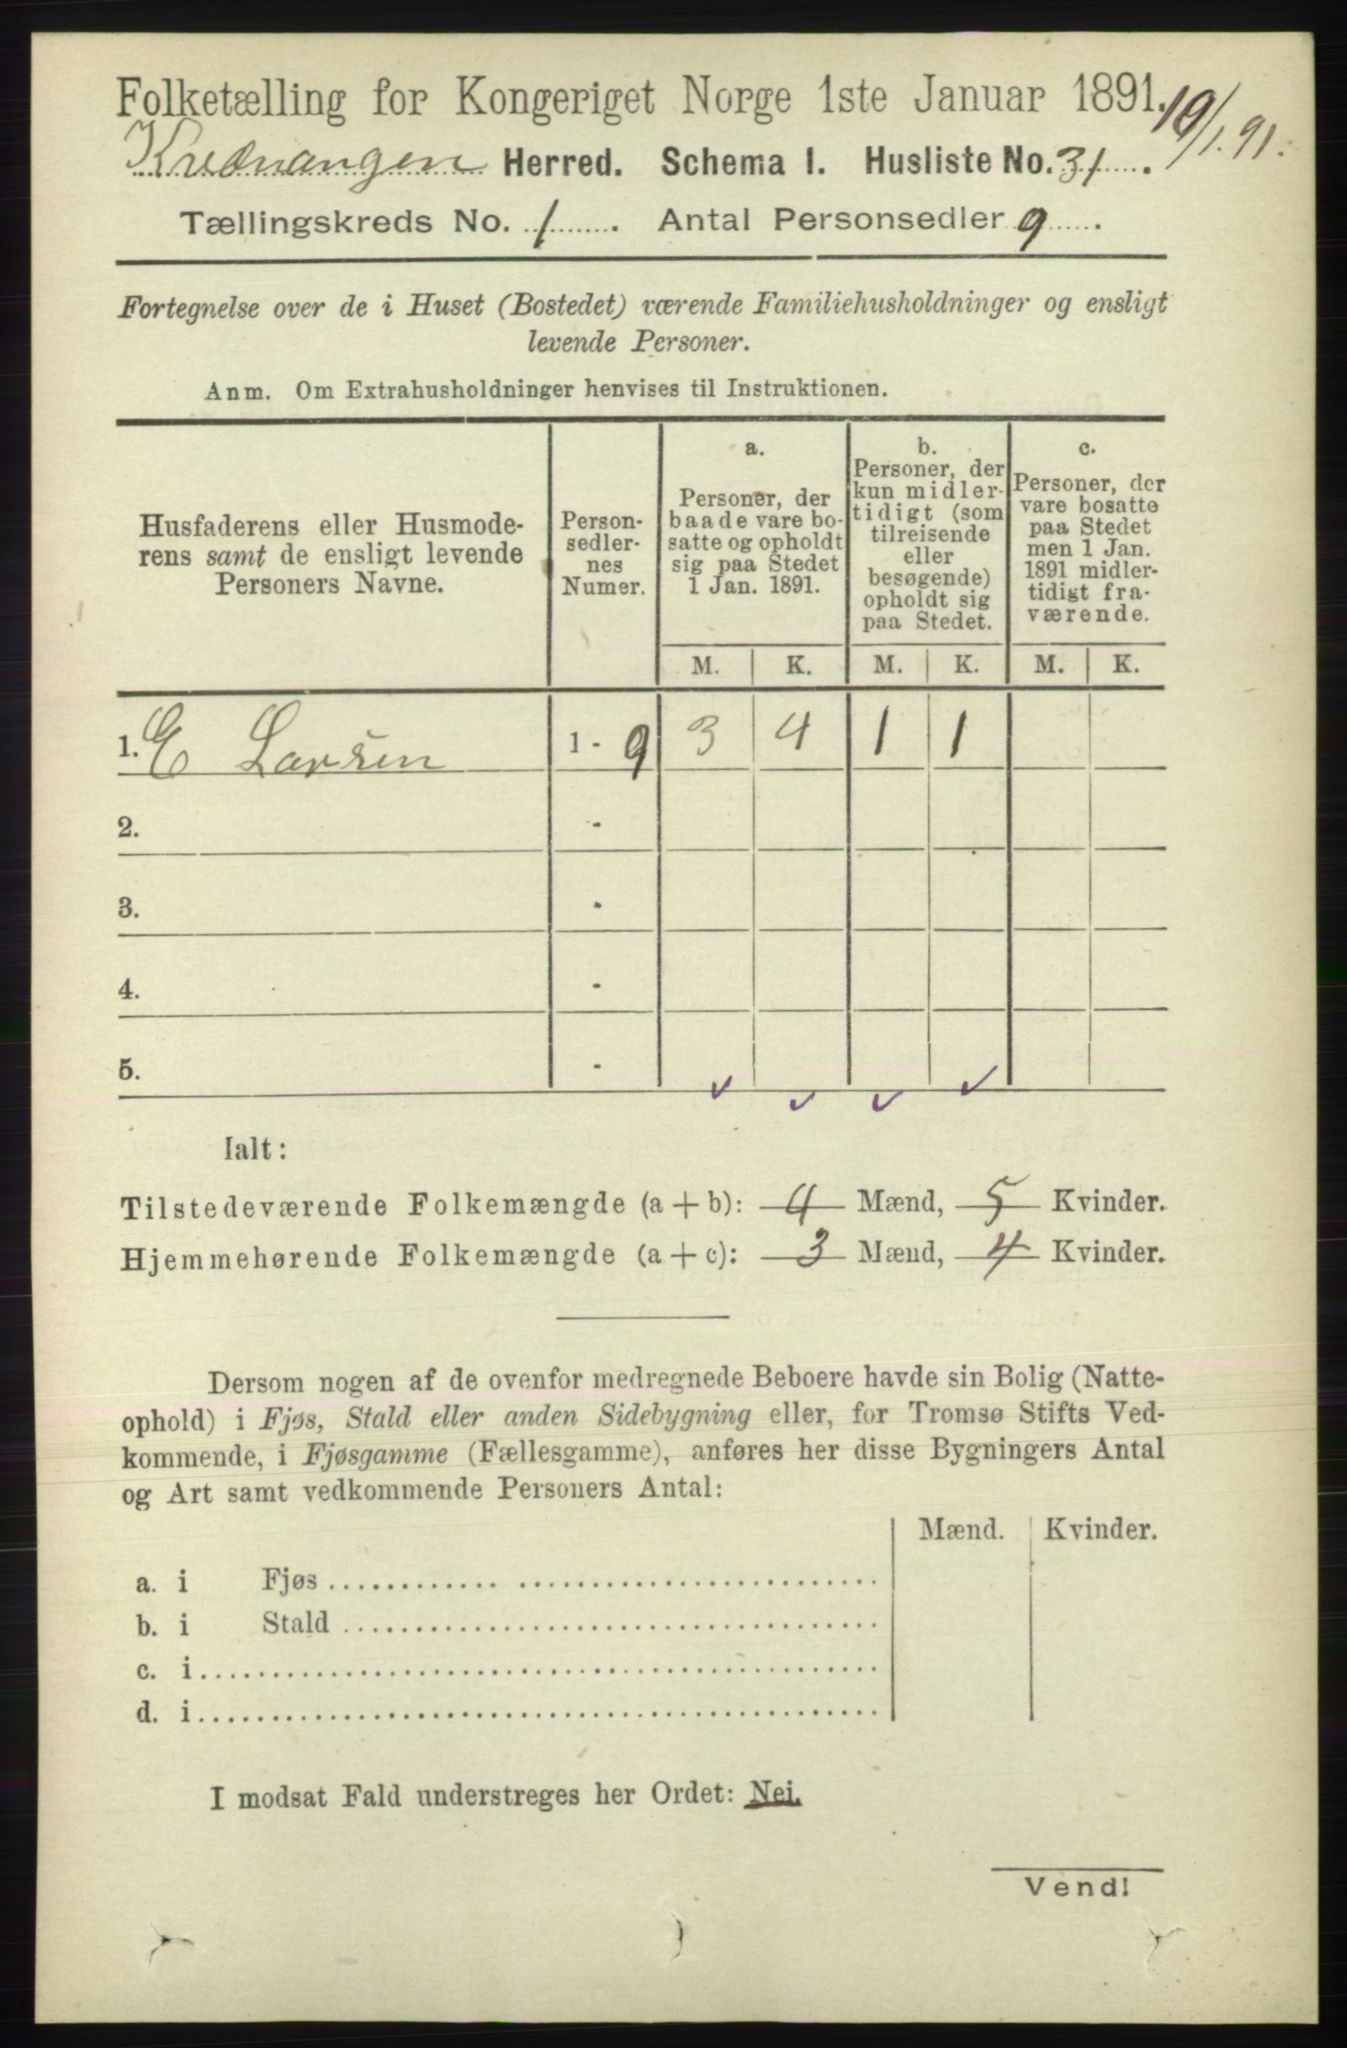 Folketælling for Kongeriget Norge 1ste Januar 1891.
19/1.91.
Kvænangen Herred. Schema 1. Husliste No. 31.
Tællingskreds No. 1. Antal Personsedler 9.
Fortegnelse over de i Huset (Bostedet) værende Familiehusholdninger og ensligt
levende Personer.
Anm. Om Extrahusholdninger henvises til Instruktionen.
Husfaderens eller Husmode-
rens samt de ensligt levende
Personers Navne.
Person-
sedler-
nes
Numer.
a.
Personer, der
baade vare bo-
satte og opholdt
sig paa Stedet
1 Jan. 1891.
b.
Personer, der
kun midler-
tidigt (som
tilreisende
eller
besøgende)
opholdt sig
paa Stedet.
c.
Personer, der
vare bosatte
paa Stedet
men 1 Jan.
1891 midler-
tidigt fra-
værende.
M. K. M. K. M. K.
1. E Larsen 1 - 9 3 4 1 1
2. -
3. -
4. -
5. -
Ialt:
Tilstedeværende Folkemængde (a + b): 4 Mænd, 5 Kvinder.
Hjemmehørende Folkemængde (a + c): 3 Mænd, 4 Kvinder.
Dersom nogen af de ovenfor medregnede Beboere havde sin Bolig (Natte-
ophold) i Fjøs, Stald eller anden Sidebygning eller, for Tromsø Stifts Ved-
kommende, i Fjøsgamme (Fællesgamme), anføres her disse Bygningers Antal
og Art samt vedkommende Personers Antal:
Mænd. Kvinder.
a. i Fjøs
b. i Stald
c. i
d. i
I modsat Fald understreges her Ordet: Nei.
Vend!